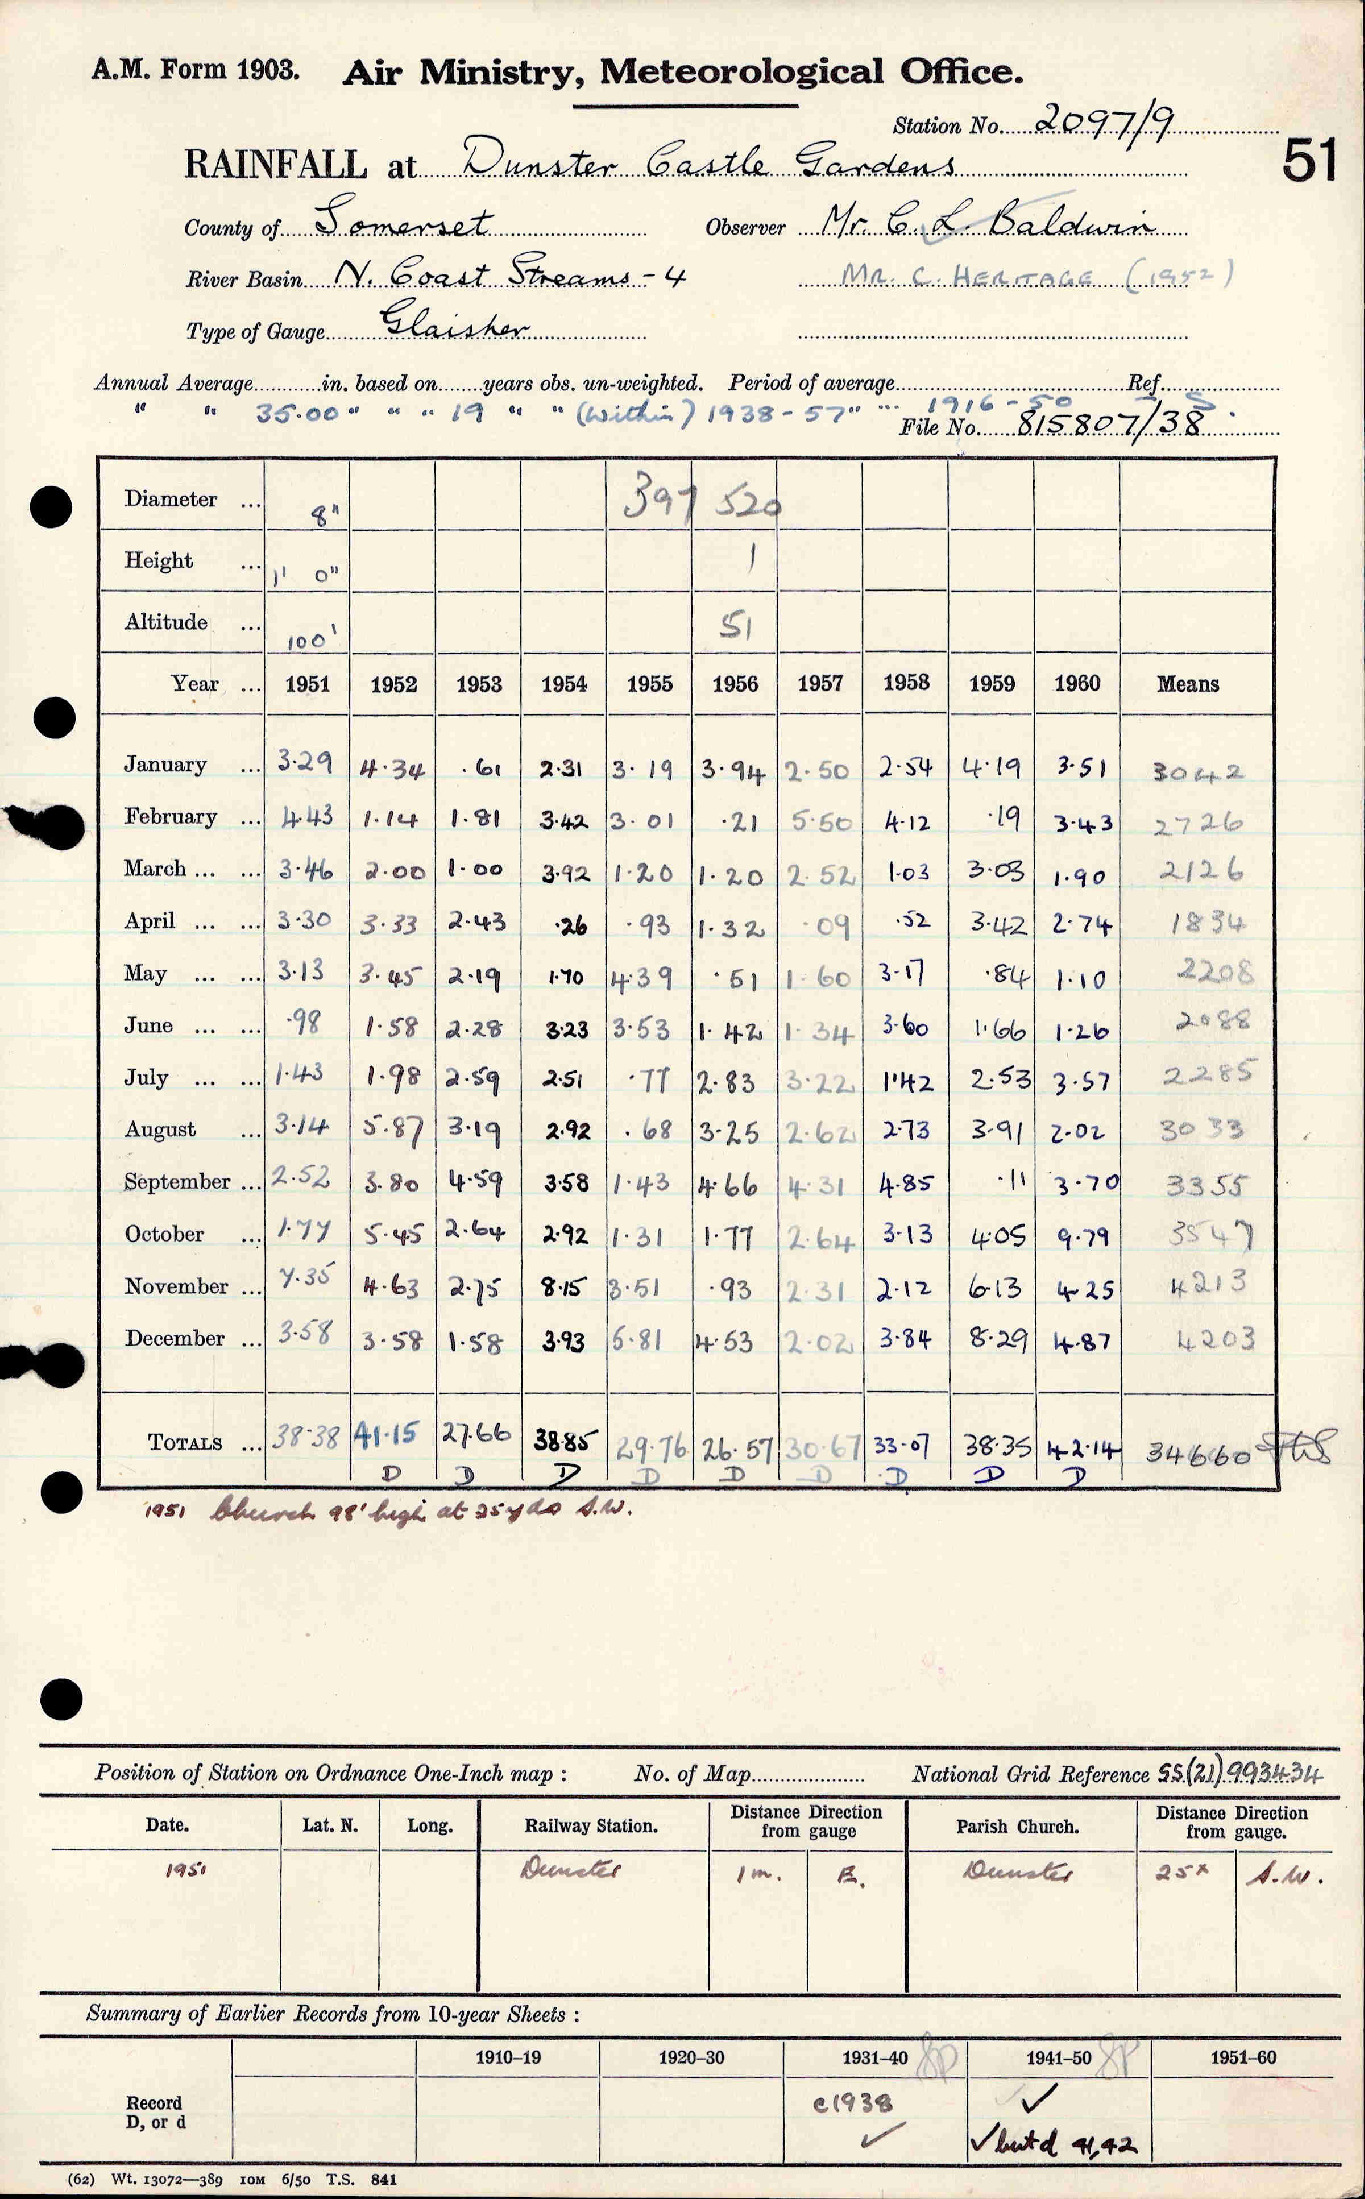 A.M. Form 1903. Air Ministry, Meteorological Office.
Station No. 2097/9
51
RAINFALL at Dunster Castle Gardens
County of Somerset Observer Mr. C. L. Baldwin
River Basin N. Coast Streams - 4 MR. C. HERITAGE (1952)
Type of Gauge Glaisher
Annual Average in. based on years obs. un-weighted. Period of average Ref.
" " 35.00 " " " 19 " " (within) 1938-57 " ... 1916-50 S.
File No. 815807/38
Diameter ... 8" 397 520
Height ... 1' 0" 1
Altitude ... 100' 51
Year ... 1951 1952 1953 1954 1955 1956 1957 1958 1959 1960 Means
January ... 3.29 4.34 .61 2.31 3.19 3.94 2.50 2.54 4.19 3.51 3042
February ... 4.43 1.14 1.81 3.42 3.01 .21 5.50 4.12 .19 3.43 2726
March ... ... 3.46 2.00 1.00 3.92 1.20 1.20 2.52 1.03 3.03 1.90 2126
April ... ... 3.30 3.33 2.43 .26 .93 1.32 .09 .52 3.42 2.74 1834
May ... ... 3.13 3.45 2.19 1.70 4.39 .51 1.60 3.17 .84 1.10 2208
June ... ... .98 1.58 2.28 3.23 3.53 1.42 1.34 3.60 1.66 1.26 2088
July ... ... 1.43 1.98 2.59 2.51 .77 2.83 3.22 1.42 2.53 3.57 2285
August ... 3.14 5.87 3.19 2.92 .68 3.25 2.62 2.73 3.91 2.02 3033
September ... 2.52 3.80 4.59 3.58 1.43 4.66 4.31 4.85 .11 3.70 3355
October ... 1.77 5.45 2.64 2.92 1.31 1.77 2.64 3.13 4.05 9.79 3547
November ... 7.35 4.63 2.75 8.15 3.51 .93 2.31 2.12 6.13 4.25 4213
December ... 3.58 3.58 1.58 3.93 5.81 4.53 2.02 3.84 8.29 4.87 4203
TOTALS ... 38.38 41.15 27.66 38.85 29.76 26.57 30.67 33.07 38.35 42.14 34660
D D D D D D D D D
1951 Church 98' high at 25 yds S.W.
Position of Station on Ordnance One-Inch map : No. of Map National Grid Reference SS(21)993434
Date. Lat. N. Long. Railway Station. Distance Direction from gauge Parish Church. Distance Direction from gauge.
1951 Dunster 1 m. E. Dunster 25x S.W.
Summary of Earlier Records from 10-year Sheets :
1910–19 1920–30 1931–40 SP 1941–50 SP 1951–60
Record D, or d c1938 ✓ ✓
✓ but d 41,42
(62) Wt. 13072—389 10M 6/50 T.S. 841